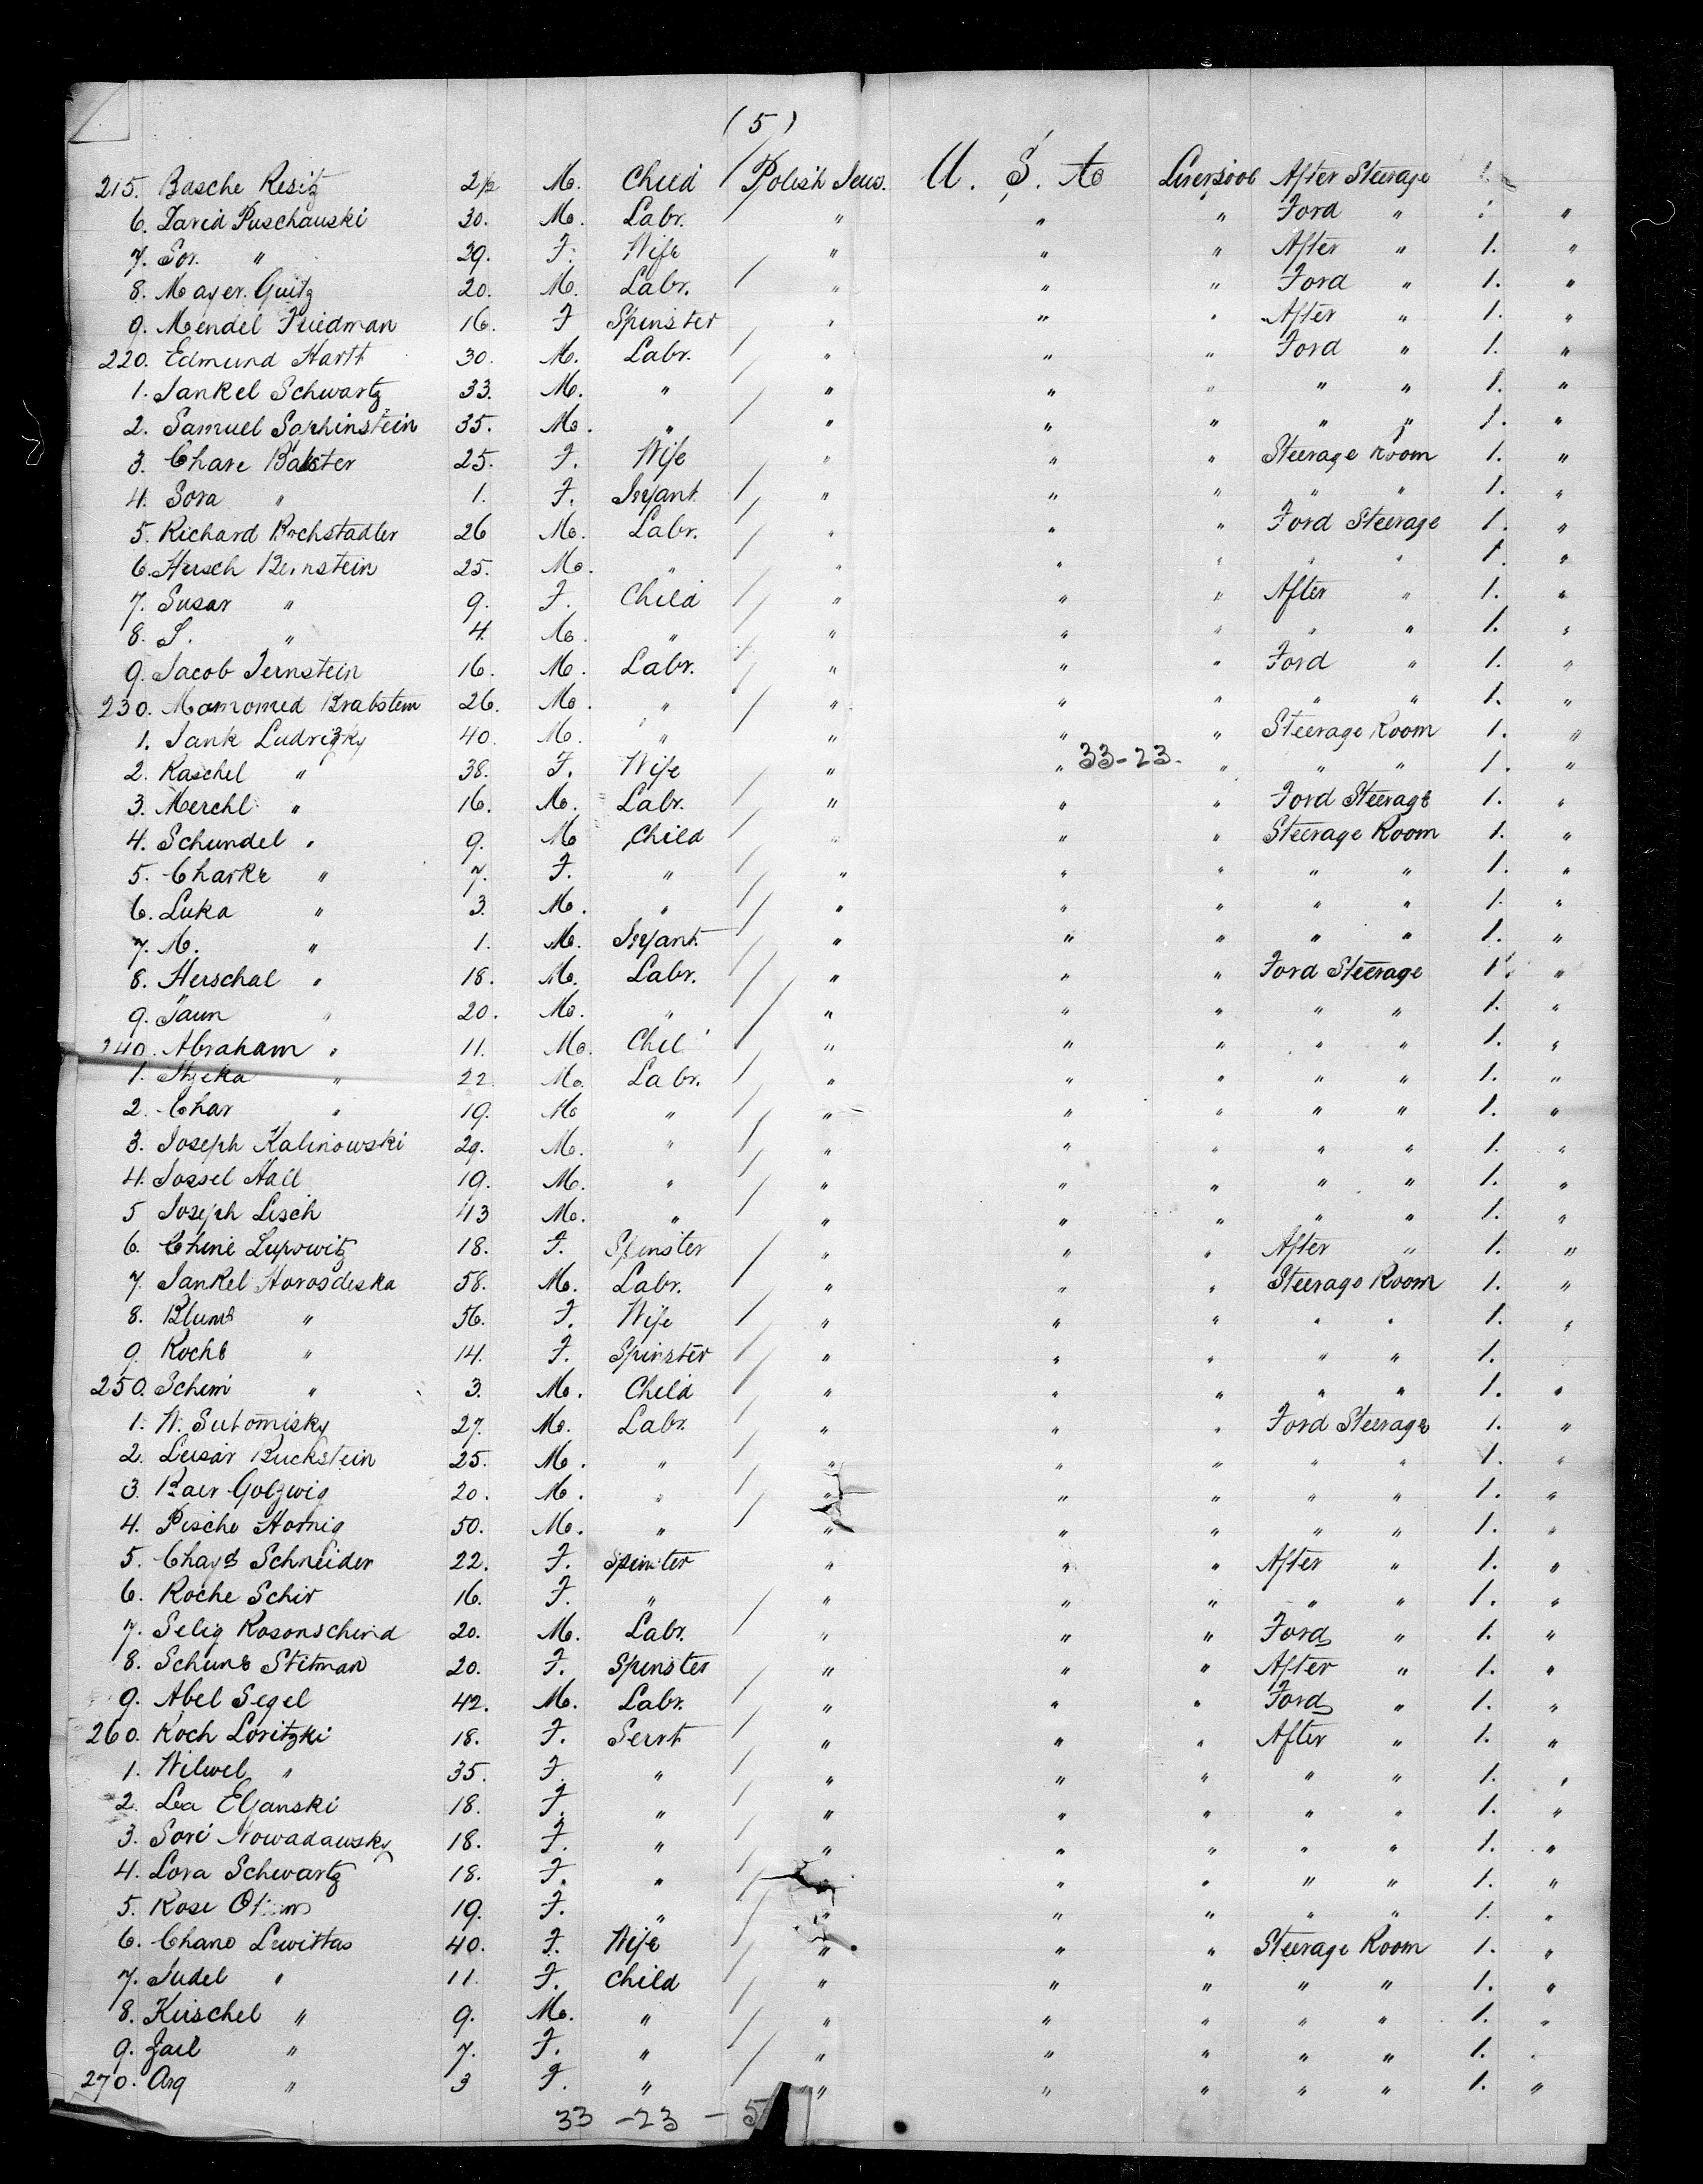 (5)
215. Basche Resitz 2 1/2 M. Child Polish Jews. U. S. A Liverpool After Steerage 1.
6. David Puschauski 30. M. Labr. " " " Ford " "
7. Sor. " 29. F. Wife " " " After " 1. "
8. Mayer Guitz 20. M. Labr. " " " Ford " 1. "
9. Mendel Friedman 16. F Spinster " " " After " 1. "
220. Edmund Hartt 30. M. Labr. " " " Ford " 1. "
1. Jankel Schwartz 33. M. " " " " " " 1. "
2. Samuel Saphinstein 35. M. " " " " " " 1. "
3. Chare Balster 25. F. Wife " " " Steerage Room 1. "
4. Sora " 1. F. Infant " " " " " 1. "
5. Richard Rochstadler 26 M. Labr. " " " Ford Steerage 1. "
6. Hersch Bernstein 25. M. " " " " " " 1. "
7. Susar " 9. F. Child " " " After " 1. "
8. S. " 4. M. " " " " " " 1. "
9. Jacob Jernstein 16. M. Labr. " " " Ford " 1. "
230. Mamomed Brabstem 26. M. " " " " " " 1. "
1. Jank Ludrizky 40. M. " " " " Steerage Room 1. "
2. Raschel " 38. F. Wife " " 33-23. " " " 1. "
3. Merchl " 16. M. Labr. " " " Ford Steerage 1. "
4. Schundel " 9. M Child " " " Steerage Room 1. "
5. Charke " 7. F. " " " " " " 1. "
6. Luka " 3. M. " " " " " " 1. "
7. M. " 1. M. Infant " " " " " 1. "
8. Herschal " 18. M. Labr. " " " Ford Steerage 1. "
9. Jaun " 20. M. " " " " " " 1. "
240. Abraham " 11. M. Chil " " " " " 1. "
1. " 22. M. Labr. " " " " " 1. "
2. Char " 19. M " " " " " " 1. "
3. Joseph Kalinowski 29. M. " " " " " " 1. "
4. Jossel Hall 19. M. " " " " " " 1. "
5 Joseph Lisch 43 M. " " " " " " 1. "
6. Chene Lupowitz 18. F. Spinster " " " After " 1. "
7. Jankel Horosdeska 58. M. Labr. " " " Steerage Room 1. "
8. Blume " 56. F. Wife " " " " " 1. "
9. Roche " 14. F. Spinster " " " " " 1.
250. Schem " 3. M. Child " " " " " 1. "
1. W. Sutomisky 27. M. Labr. " " " Ford Steerage 1. "
2. Leisar Buckstein 25. M. " " " " " " 1. "
3. Baer Golzwig 20. M. " " " " " " 1. "
4. Pische Hornig 50. M. " " " " " " 1. "
5. Chaye Schneider 22. F. Spinster " " " After " 1. "
6. Roche Schir 16. F. " " " " " " 1. "
7. Selig Rosonschend 20. M. Labr. " " " Ford " 1. "
8. Schune Stitman 20. F. Spinster " " " After " 1. "
9. Abel Segel 42. M. Labr. " " " Ford " 1. "
260. Roch Loritzki 18. F. Servt " " " After " 1. "
1. Wilwel " 35. F. " " " " " " 1. "
2. Lea Elganski 18. F. " " " " " " 1. "
3. Sore Nowadawsky 18. F. " " " " " " 1. "
4. Lora Schwartz 18. F. " " " " " " 1. "
5. Rose 19. F. " " " " " " 1. "
6. Chano Lewittas 40. F. Wife " " " Steerage Room 1. "
7. Judel " 11. F. Child " " " " " 1. "
8. Kirschel " 9. M. " " " " " " 1. "
9. Jail " 7. F. " " " " " " 1. "
270. Arq " 3 F. " " " " " " 1. "
33 - 23 - 5